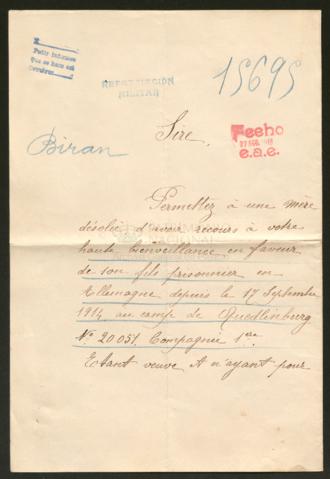 Pedir informes
que se hace así
REPATRIACION
MILITAR
15695
Fecho
e.a.e.
Biran
Sire,
Permettez à une mère
désolée d'avoir recours à votre
haute bienveillance en faveur
de son fils prisonnier en
Allemagne depuis le 17 Septembre
1914 au camp de Quedlinburg
N° 20051. Compagnie 1ère
Etant veuve et n'ayant pour